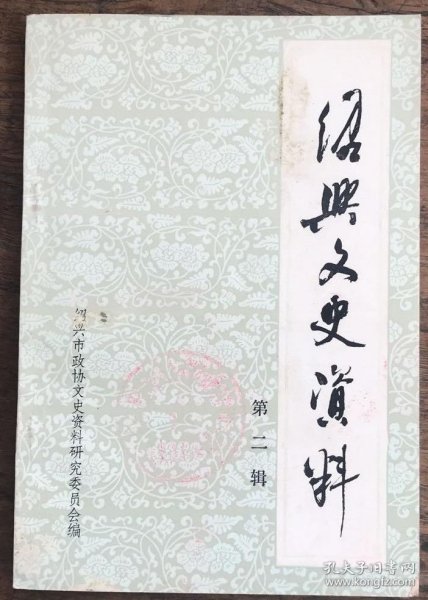 绍兴文史资料
第二辑
绍兴市政协文史资料研究委员会编
孔夫子旧书网
www.kongfz.com